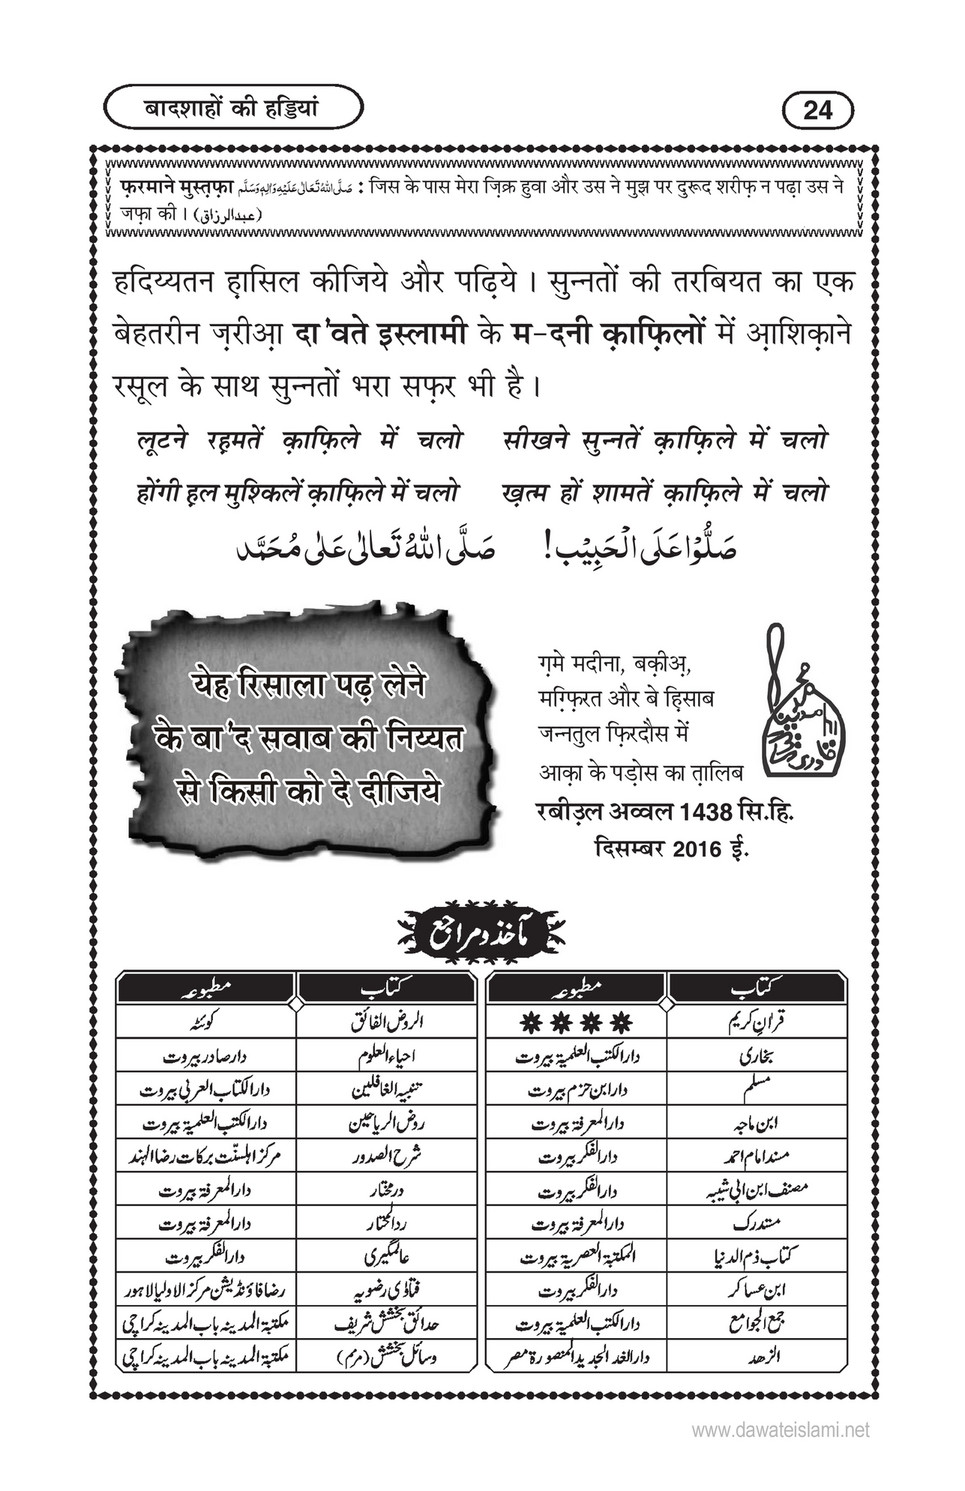 बादशाहों की हड्डियां
24
फ़रमाने मुस्त़फ़ा صَلَّى اللهُ تَعَالٰى عَلَيْهِ وَاٰلِهٖ وَسَلَّم : जिस के पास मेरा ज़िक्र हुवा और उस ने मुझ पर दुरूद शरीफ़ न पढ़ा उस ने
जफ़ा की । (عبدالرزاق)
हदिय्यतन ह़ासिल कीजिये और पढ़िये । सुन्नतों की तरबियत का एक
बेहतरीन ज़रीआ़ दा'वते इस्लामी के म-दनी क़ाफ़िलों में आ़शिक़ाने
रसूल के साथ सुन्नतों भरा सफ़र भी है ।
लूटने रह़मतें क़ाफ़िले में चलो सीखने सुन्नतें क़ाफ़िले में चलो
होंगी ह़ल मुश्किलें क़ाफ़िले में चलो ख़त्म हों शामतें क़ाफ़िले में चलो
صَلُّوْا عَلَى الْحَبِيْب! صَلَّى اللهُ تَعَالٰى عَلٰى مُحَمَّد
येह रिसाला पढ़ लेने
के बा'द सवाब की निय्यत
से किसी को दे दीजिये
ग़मे मदीना, बक़ीअ़,
मग़्फ़िरत और बे ह़िसाब
जन्नतुल फ़िरदौस में
आक़ा के पड़ोस का त़ालिब
रबीउ़ल अव्वल 1438 सि.हि.
दिसम्बर 2016 ई.
مآخذ و مراجع
کتاب مطبوعہ کتاب مطبوعہ
قرآنِ کریم ✵✵✵✵ الروض الفائق کوئٹہ
بخاری دارالکتب العلمیۃ بیروت احیاء العلوم دار صادر بیروت
مسلم دار ابن حزم بیروت تنبیہ الغافلین دارالکتاب العربی بیروت
ابن ماجہ دارالمعرفۃ بیروت روض الریاحین دارالکتب العلمیۃ بیروت
مسند امام احمد دارالفکر بیروت شرح الصدور مرکز اہلسنّت برکات رضا الہند
مصنف ابن ابی شیبہ دارالفکر بیروت درمختار دارالمعرفۃ بیروت
مستدرک دارالمعرفۃ بیروت ردالمحتار دارالمعرفۃ بیروت
کتاب ذم الدنیا المکتبۃ العصریۃ بیروت عالمگیری دارالفکر بیروت
ابن عساکر دارالفکر بیروت فتاوٰی رضویہ رضا فاؤنڈیشن مرکز الاولیا لاہور
جمع الجوامع دارالکتب العلمیۃ بیروت حدائق بخشش شریف مکتبۃ المدینہ باب المدینہ کراچی
الزھد دارالغد الجدید المنصورۃ مصر وسائل بخشش (مرمم) مکتبۃ المدینہ باب المدینہ کراچی
www.dawateislami.net